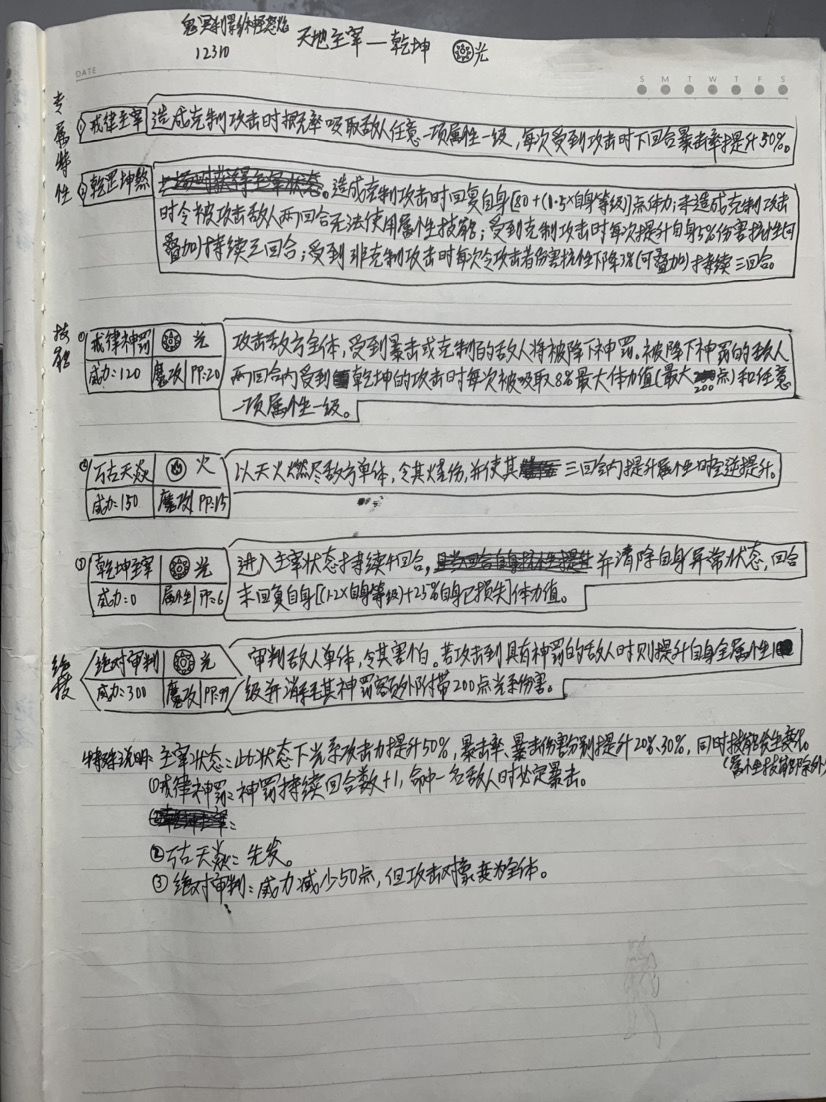 12310 天地主宰—乾坤 光
DATE
S M T W T F S
专属特性
① 戒律主宰 造成克制攻击时概率吸取敌人任意一项属性一级,每次受到攻击时下回合暴击率提升50%。
② 乾罡坤煞 造成克制攻击时回复自身[80+(0.5×自身等级)]点体力;未造成克制攻击
时令被攻击敌人两回合无法使用属性技能;受到克制攻击时每次提升自身5%伤害抗性(可
叠加)持续三回合;受到非克制攻击时每次令攻击者伤害抗性下降3%(可叠加)持续三回合。
技能
① 戒律神罚 光 攻击敌方全体,受到暴击或克制的敌人将被降下神罚。被降下神罚的敌人
威力:120 魔攻 PP:20 两回合内受到乾坤的攻击时每次被吸取8%最大体力值(最大200点)和任意
一项属性一级。
② 万古天焱 火 以天火燃尽敌方单体,令其烧伤,并使其三回合内提升属性时全逆提升。
威力:150 魔攻 PP:15
③ 乾坤主宰 光 进入主宰状态持续4回合,并清除自身异常状态,回合
威力:0 属性 PP:6 末回复自身[(1.2×自身等级)+25%自身已损失]体力值。
绝技
绝对审判 光 审判敌人单体,令其害怕。若攻击到具有神罚的敌人时则提升自身全属性1
威力:300 魔攻 PP:99 级并消耗其神罚额外附带200点光系伤害。
特殊说明:主宰状态:此状态下光系攻击力提升50%,暴击率、暴击伤害分别提升20%、30%,同时技能发生变化。
(属性技能除外)
①戒律神罚:神罚持续回合数+1,命中一名敌人时必定暴击。
②万古天焱:先发。
③绝对审判:威力减少50点,但攻击对象变为全体。